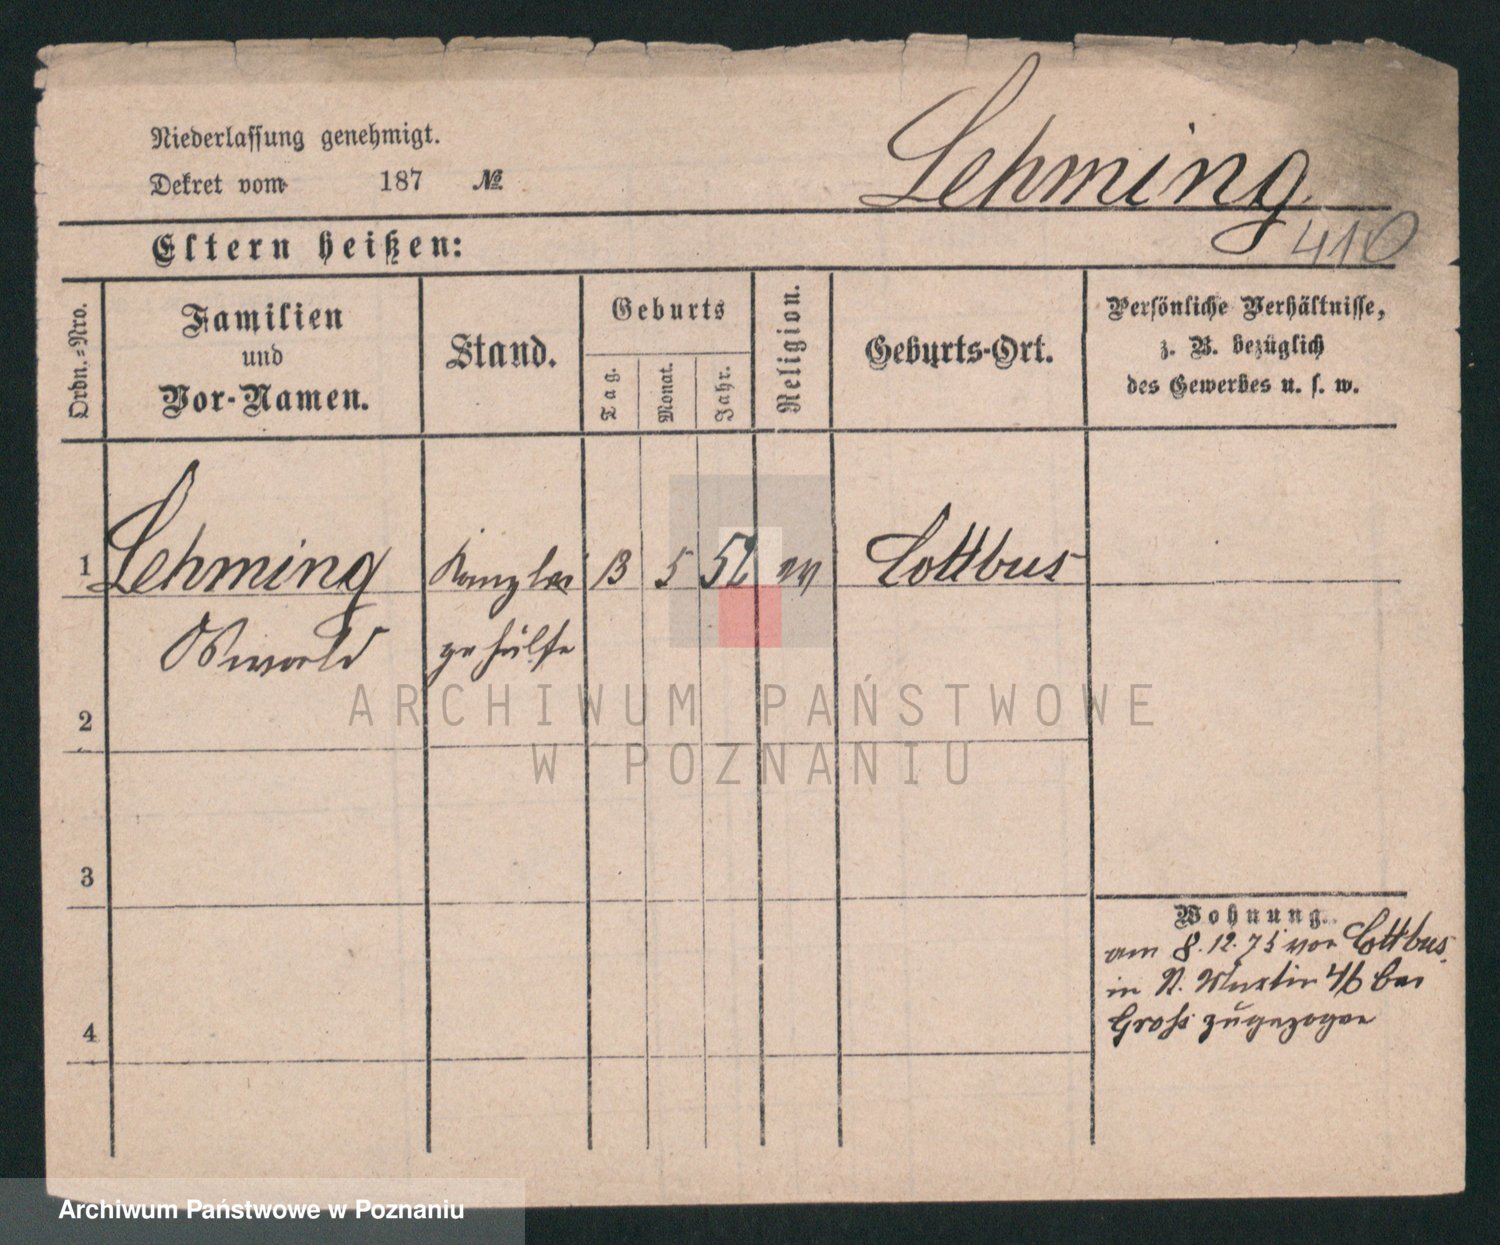 Niederlassung genehmigt.
Dekret vom 187 №
Lehming
410
Eltern heißen:
Ordn.-Nro.
Familien
und
Vor-Namen.
Stand.
Geburts
Tag.
Monat.
Jahr.
Religion.
Geburts-Ort.
Persönliche Verhältnisse,
z. B. bezüglich
des Gewerbes u. s. w.
1 Lehming Kanzlei 13 5 52 ev Cottbus
Oswald gehülfe
2
3
4
Wohnung.
am 8.12.75 von Cottbus
in St. Martin 46 bei
Groß zugezogen
ARCHIWUM PAŃSTWOWE
W POZNANIU
Archiwum Państwowe w Poznaniu